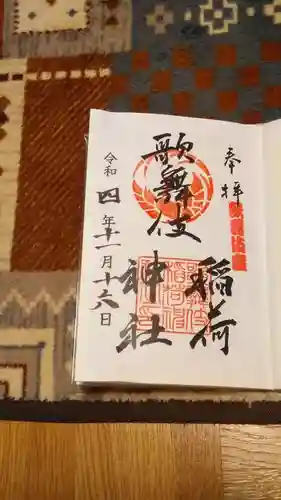 奉拝
歌舞伎
稲荷
神社
令和四年十一月十六日